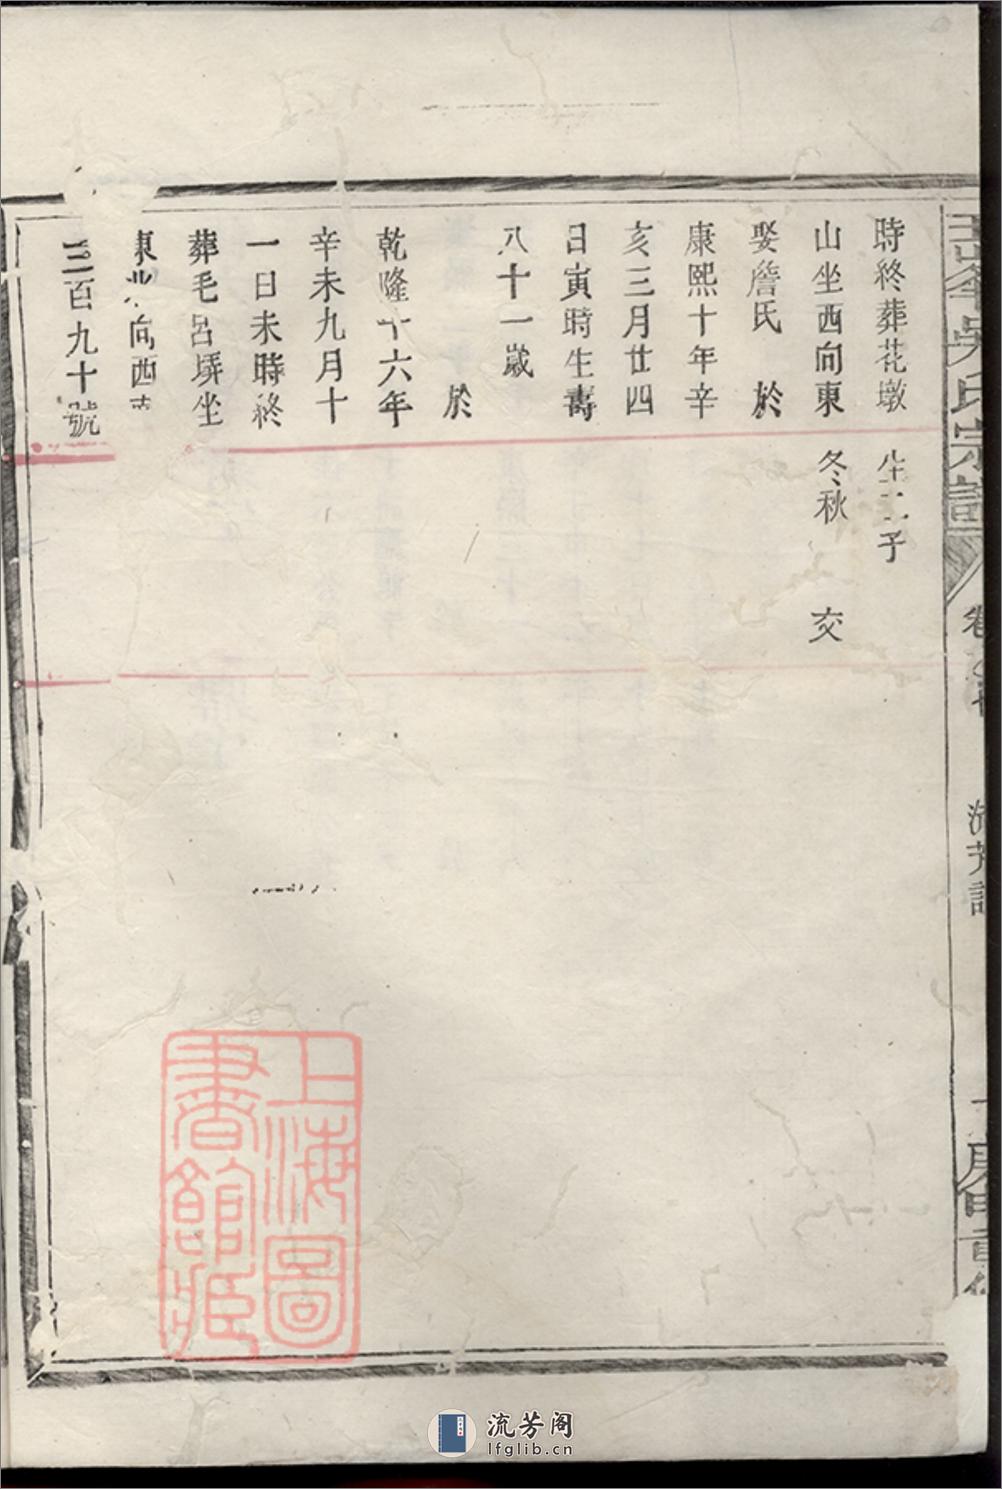 吳氏宗譜
卷
時終葬花墩 生二子
山坐西向東 冬秋 交
娶詹氏 於
康熙十年辛
亥三月廿四
日寅時生壽
八十一歲
於
乾隆十六年
辛未九月十
一日未時終
葬毛呂塝坐
東北向西南
三百九十號
上海圖
書館藏
流芳阁
lfglib.cn